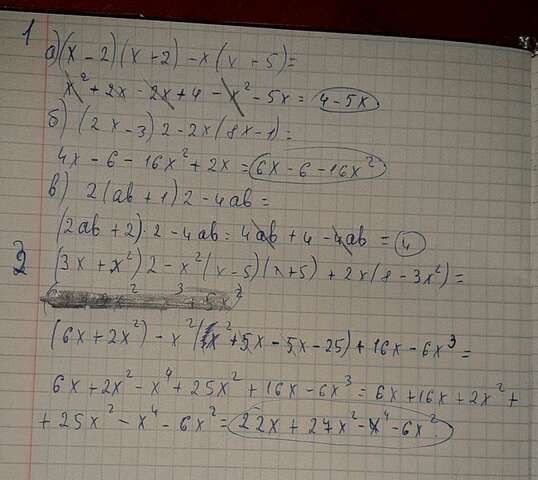 1
а) (x - 2) (x + 2) - x (x + 5) =
x² + 2x - 2x + 4 - x² - 5x = 4 - 5x
б) (2x - 3) 2 - 2x (8x - 1) =
4x - 6 - 16x² + 2x = 6x - 6 - 16x²
в) 2 (ab + 1) 2 - 4ab =
(2ab + 2) · 2 - 4ab = 4ab + 4 - 4ab = 4
2 (3x + x²) 2 - x² (x - 5) (x + 5) + 2x (8 - 3x²) =
(6x + 2x²) - x² (x² + 5x - 5x - 25) + 16x - 6x³ =
6x + 2x² - x⁴ + 25x² + 16x - 6x³ = 6x + 16x + 2x² +
+ 25x² - x⁴ - 6x² = 22x + 27x² - x⁴ - 6x²